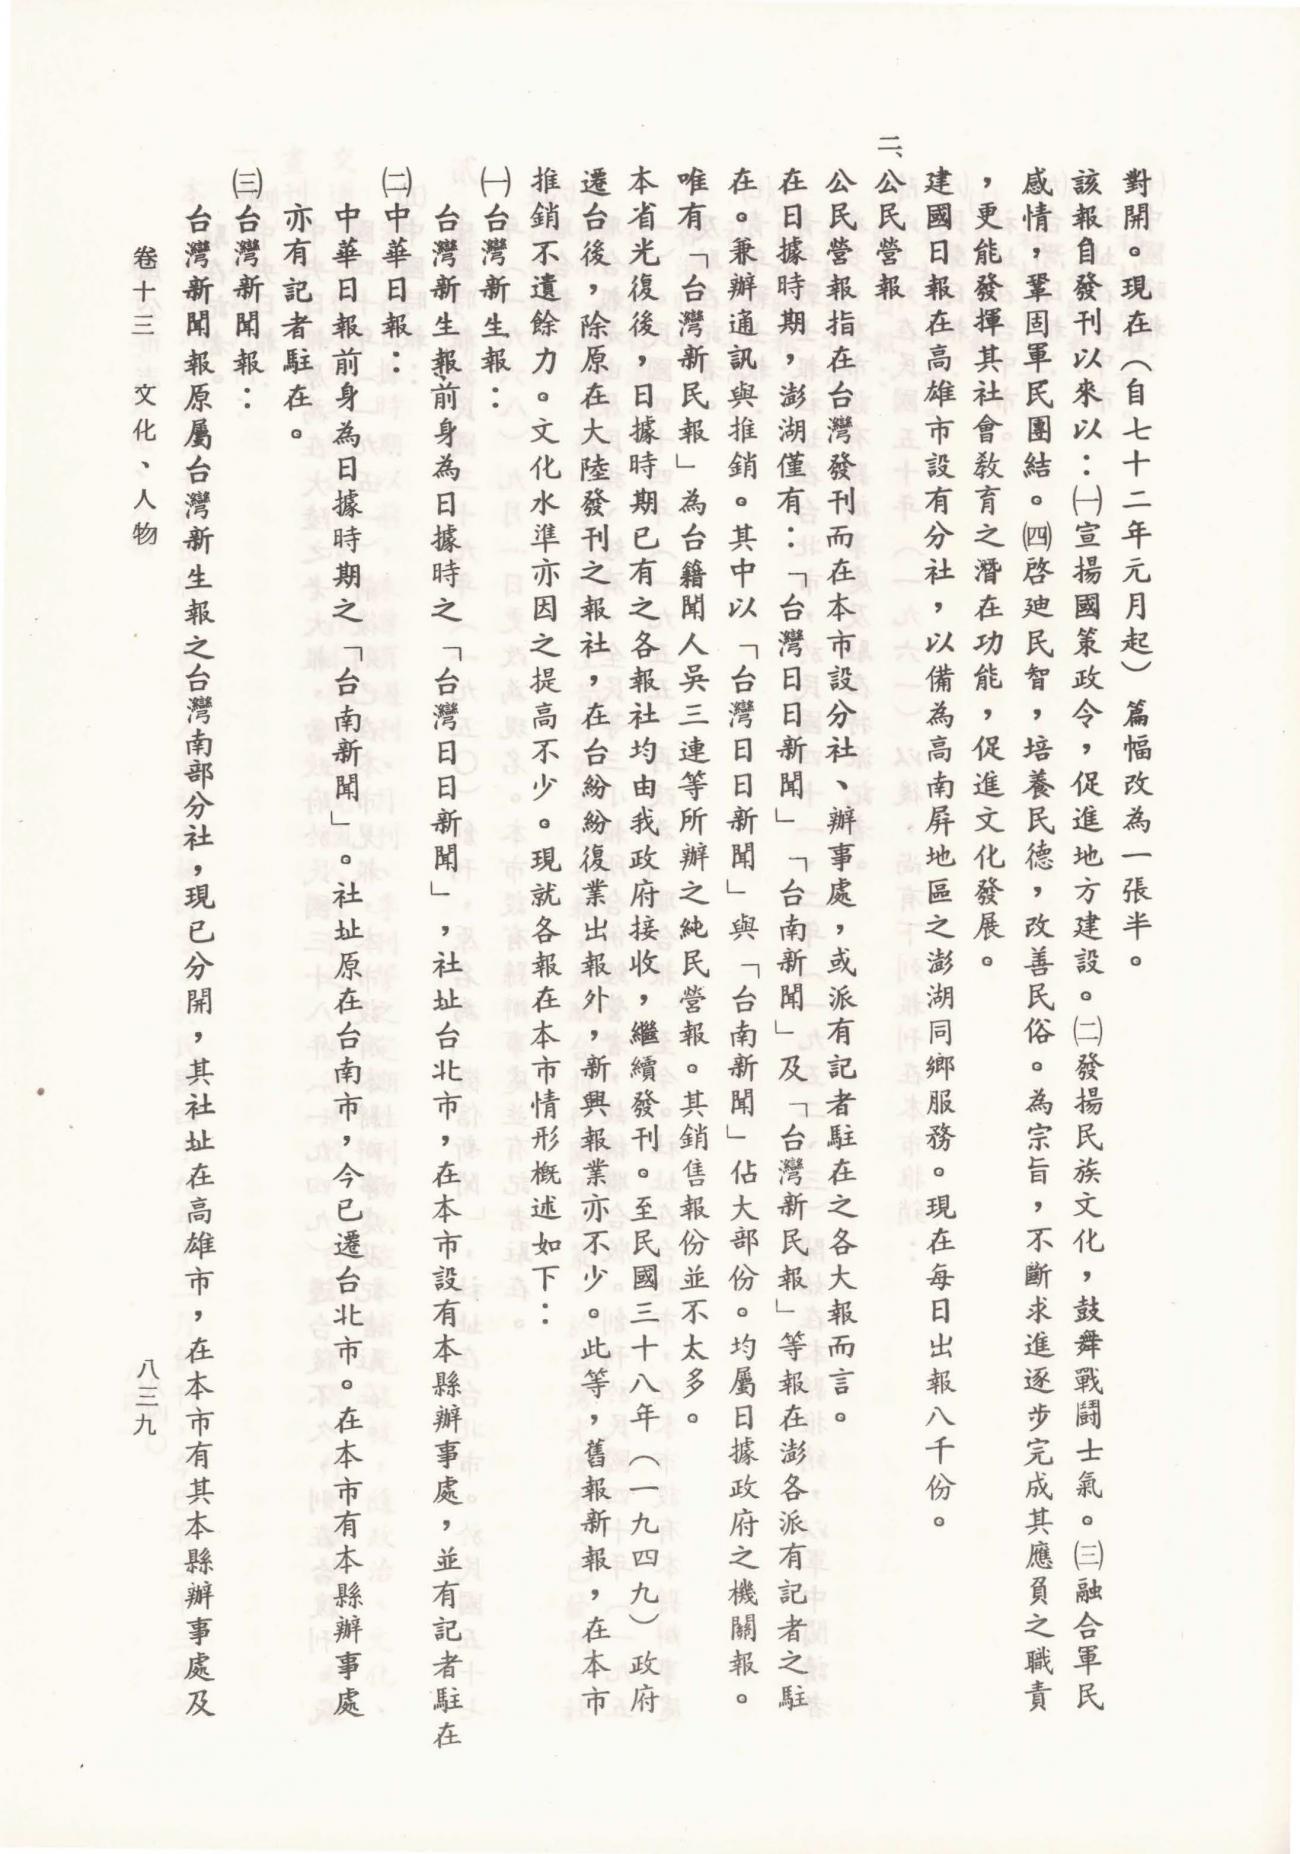 對開。現在（自七十二年元月起）篇幅改為一張半。
該報自發刊以來以：㈠宣揚國策政令，促進地方建設。㈡發揚民族文化，鼓舞戰鬪士氣。㈢融合軍民
感情，鞏固軍民團結。㈣啓廸民智，培養民德，改善民俗。為宗旨，不斷求進逐步完成其應負之職責
，更能發揮其社會敎育之潛在功能，促進文化發展。
建國日報在高雄市設有分社，以備為高南屛地區之澎湖同鄉服務。現在每日出報八千份。
二、公民營報
公民營報指在台灣發刊而在本市設分社、辦事處，或派有記者駐在之各大報而言。
在日據時期，澎湖僅有：「台灣日日新聞」「台南新聞」及「台灣新民報」等報在澎各派有記者之駐
在。兼辦通訊與推銷。其中以「台灣日日新聞」與「台南新聞」佔大部份。均屬日據政府之機關報。
唯有「台灣新民報」為台籍聞人吳三連等所辦之純民營報。其銷售報份並不太多。
本省光復後，日據時期已有之各報社均由我政府接收，繼續發刊。至民國三十八年（一九四九）政府
遷台後，除原在大陸發刊之報社，在台紛紛復業出報外，新興報業亦不少。此等，舊報新報，在本市
推銷不遺餘力。文化水準亦因之提高不少。現就各報在本市情形概述如下：
㈠台灣新生報：
台灣新生報前身為日據時之「台灣日日新聞」，社址台北市，在本市設有本縣辦事處，並有記者駐在
㈡中華日報：
中華日報前身為日據時期之「台南新聞」。社址原在台南市，今已遷台北市。在本市有本縣辦事處
亦有記者駐在。
㈢台灣新聞報：
台灣新聞報原屬台灣新生報之台灣南部分社，現已分開，其社址在高雄市，在本市有其本縣辦事處及
卷十三 文化、人物
八三九